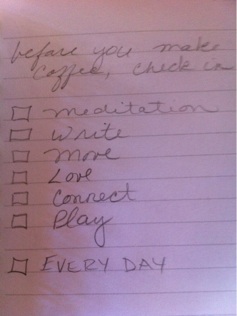 before you make
coffee, check in
meditation
write
move
Love
Connect
Play
EVERY DAY